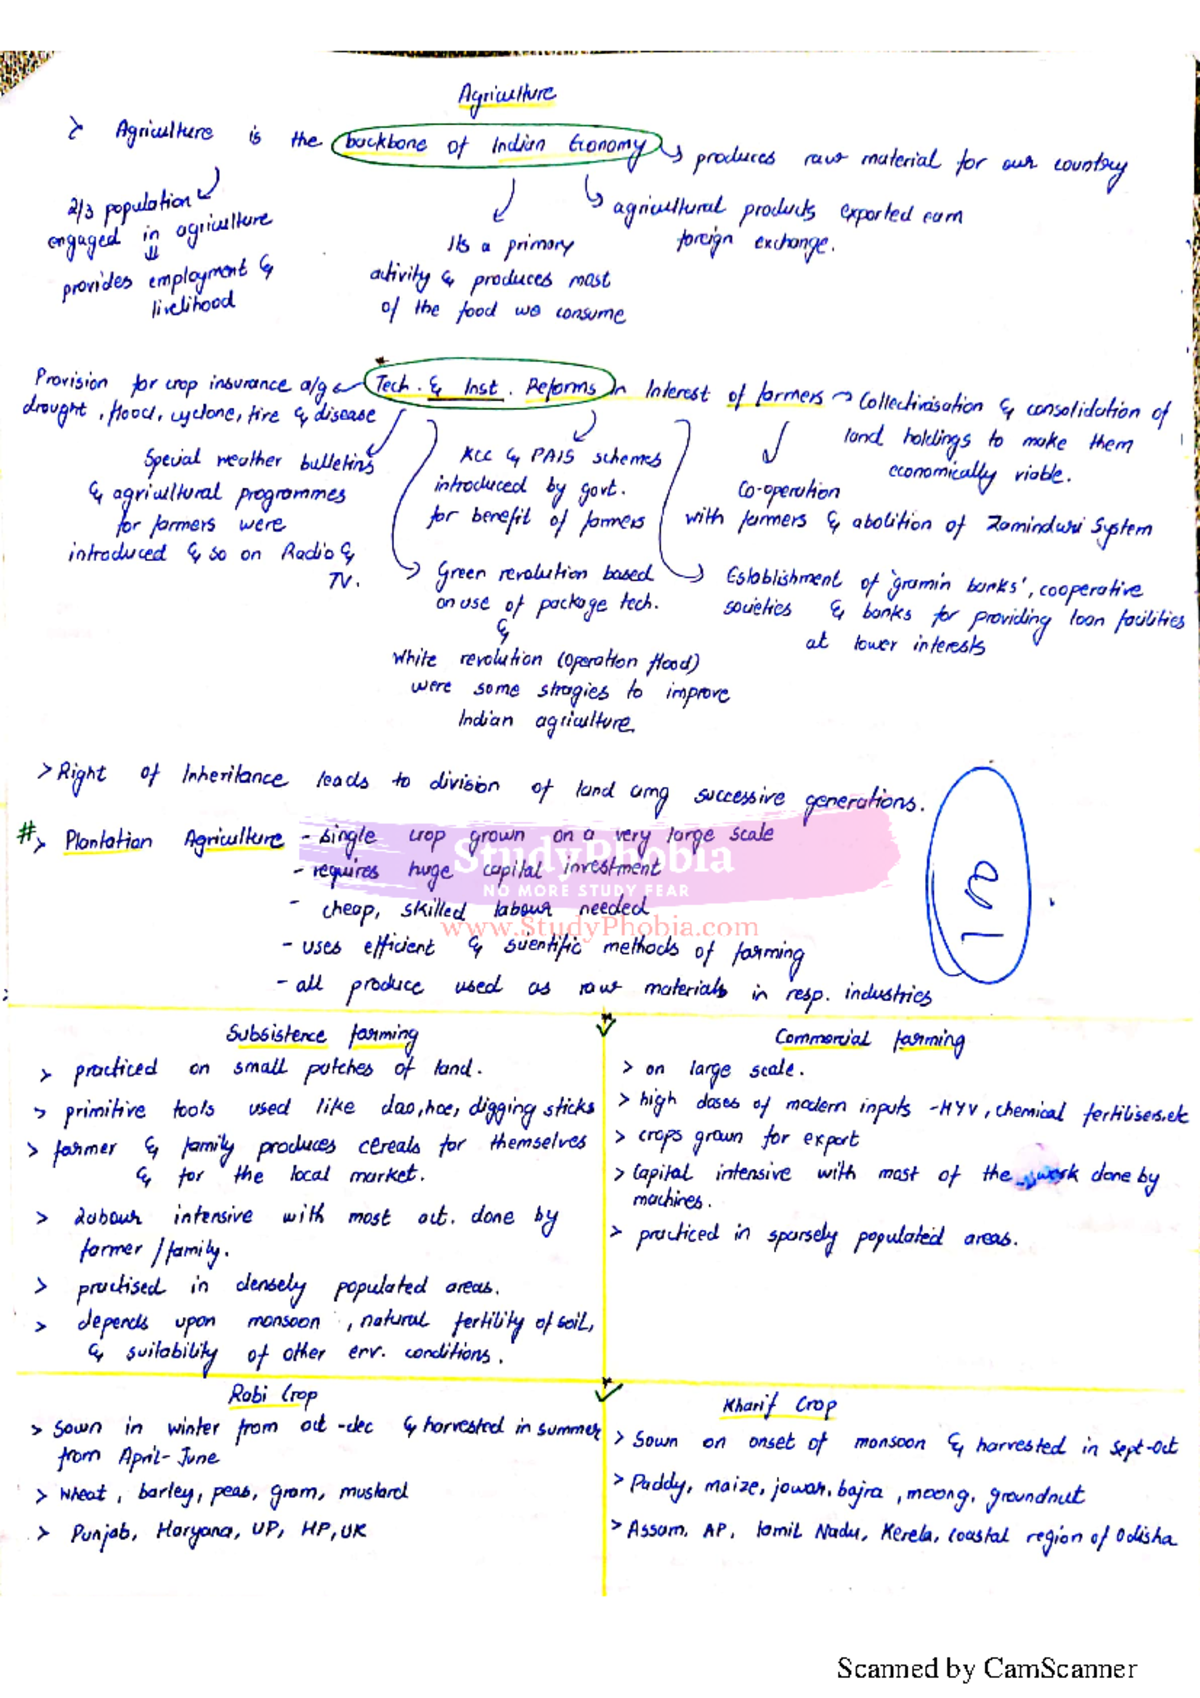 Agriculture
> Agriculture is the backbone of Indian Economy → produces raw material for our country
2/3 population
engaged in agriculture
⇓
provides employment &
livelihood
Its a primary
activity & produces most
of the food we consume
agricultural products exported earn
foreign exchange.
Provision for crop insurance a/g ← Tech. & Inst. Reforms in Interest of farmers → Collectivisation & consolidation of
drought, flood, cyclone, fire & disease
land holdings to make them
economically viable.
Special weather bulletins
& agricultural programmes
for farmers were
introduced & so on Radio &
TV.
KCC & PAIS schemes
introduced by govt.
for benefit of farmers
Co-operation
with farmers & abolition of Zamindari System
Green revolution based
on use of package tech.
&
White revolution (Operation flood)
were some stragies to improve
Indian agriculture.
Establishment of 'gramin banks', cooperative
societies & banks for providing loan facilities
at lower interests
> Right of Inheritance leads to division of land amg successive generations.
# > Plantation Agriculture - single crop grown on a very large scale
- requires huge capital investment
- cheap, skilled labour needed
- uses efficient & scientific methods of farming
- all produce used as raw materials in resp. industries
StudyPhobia
NO MORE STUDY FEAR
www.StudyPhobia.com
Subsistence farming
> practiced on small patches of land.
> primitive tools used like dao, hoe, digging sticks
> farmer & family produces cereals for themselves
& for the local market.
> Labour intensive with most act. done by
farmer / family.
> practised in densely populated areas.
> depends upon monsoon, natural fertility of soil,
& suitability of other env. conditions.
Commercial farming
> on large scale.
> high doses of modern inputs - HYV, chemical fertilisers, etc
> crops grown for export
> Capital intensive with most of the work done by
machines.
> practiced in sparsely populated areas.
Rabi Crop
> Sown in winter from oct-dec & harvested in summer
from April-June
> Wheat, barley, peas, gram, mustard
> Punjab, Haryana, UP, HP, UK
Kharif Crop
> Sown on onset of monsoon & harvested in Sept-Oct
> Paddy, maize, jowar, bajra, moong, groundnut
> Assam, AP, Tamil Nadu, Kerela, coastal region of Odisha
Scanned by CamScanner